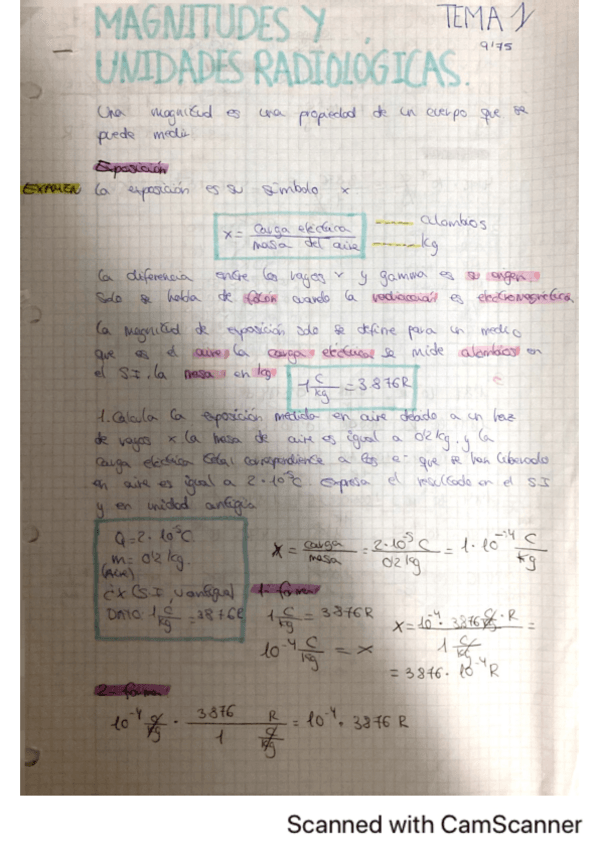 MAGNITUDES Y
UNIDADES RADIOLÓGICAS.
TEMA 1
9'75
Una magnitud es una propiedad de un cuerpo que se
puede medir
Exposición
EXAMEN La exposición es su símbolo x
x = carga eléctrica / masa del aire
culombios
kg
La diferencia entre los rayos x y gamma es su origen.
Solo se habla de fotón cuando la radiación es electromagnética
La magnitud de exposición solo se define para un medio
que es el aire, la carga eléctrica se mide culombios en
el S.I. la masa en kg
1 C/kg = 3876R
1. Calcula la exposición medida en aire deado a un haz
de rayos x la masa de aire es igual a 0'2 kg. y la
carga eléctrica total correspondiente a los e- que se han liberado
en aire es igual a 2·10⁻⁵C. expresa el resultado en el S.I
y en unidad antigua
Q = 2·10⁻⁵C
m = 0'2 kg.
(AIRE)
¿X (S.I, u antigua)
DATO: 1 C/kg = 3876R
X = carga/masa = 2·10⁻⁵ C / 0'2 kg = 1·10⁻⁴ C/kg
1- forma
1 C/kg = 3876R
10⁻⁴ C/kg = x
X = 10⁻⁴ · 3876 C/kg · R / 1 C/kg =
= 3876·10⁻⁴ R
2- forma
10⁻⁴ C/kg · 3876 R / 1 C/kg = 10⁻⁴ · 3876 R
Scanned with CamScanner